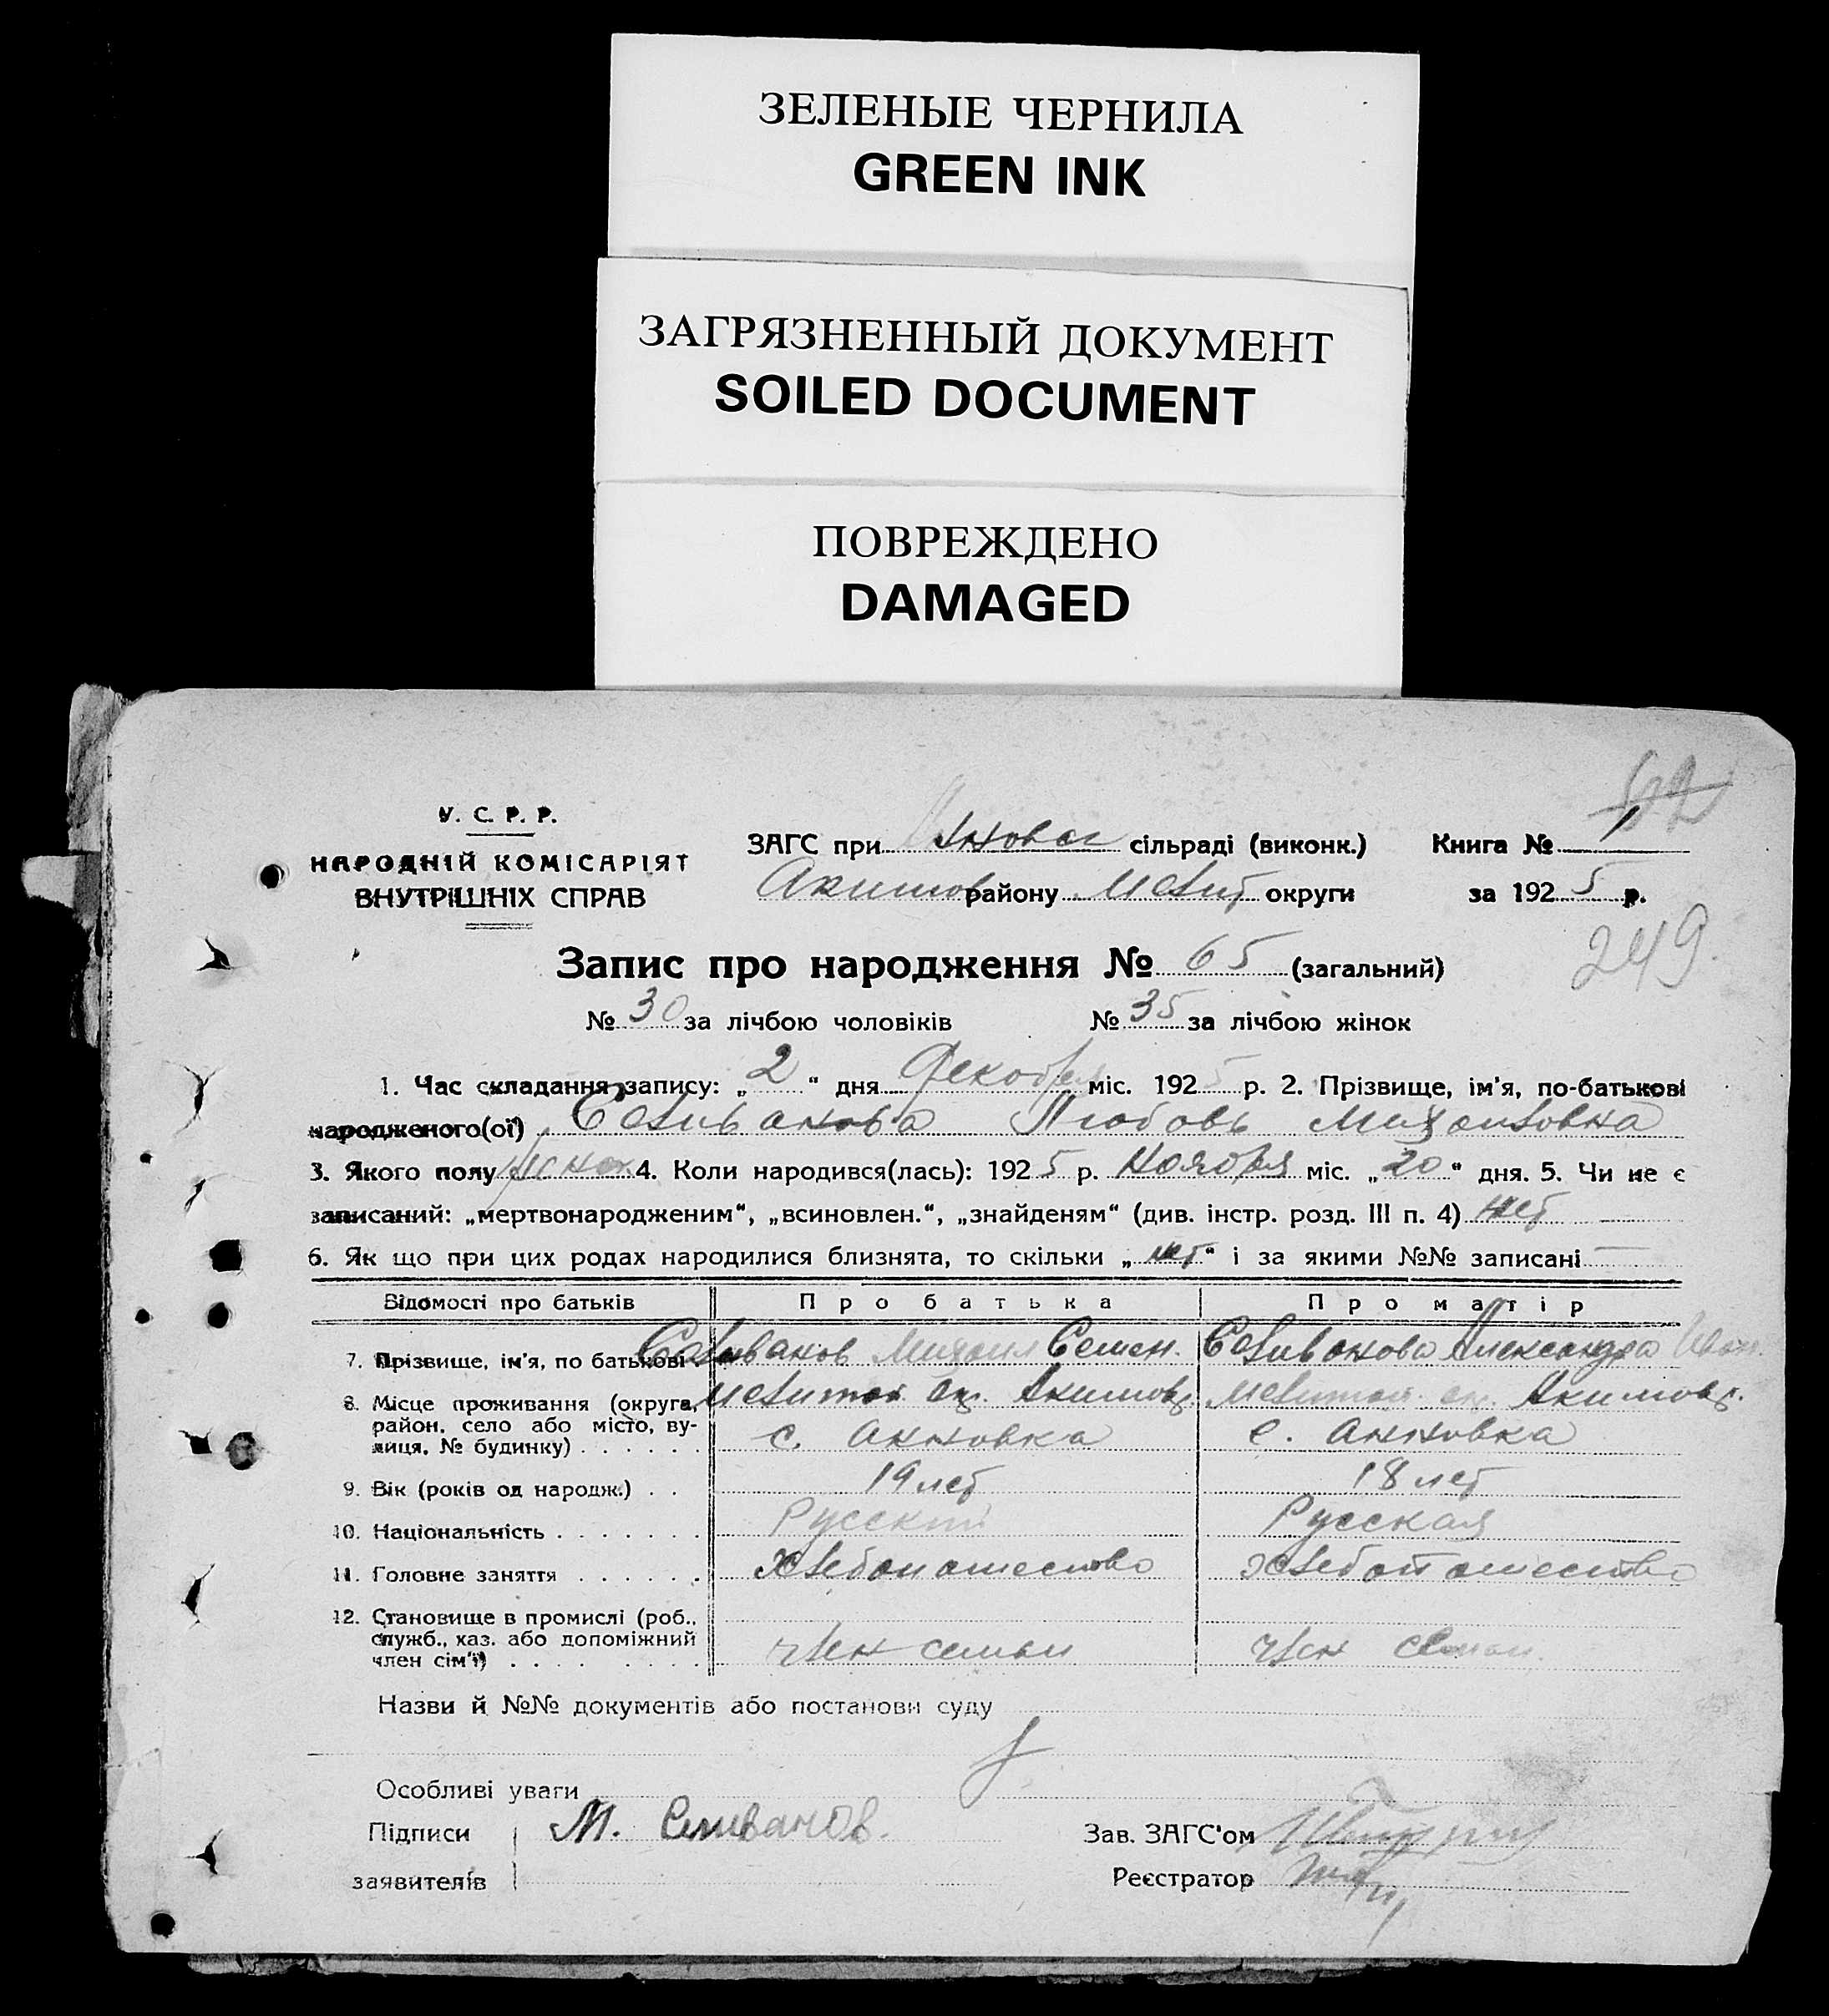 ЗЕЛЕНЫЕ ЧЕРНИЛА
GREEN INK
ЗАГРЯЗНЕННЫЙ ДОКУМЕНТ
SOILED DOCUMENT
ПОВРЕЖДЕНО
DAMAGED
У. С. Р. Р.
НАРОДНІЙ КОМІСАРІЯТ
ВНУТРІШНІХ СПРАВ
ЗАГС при сільраді (виконк.) Книга № 1
Акимов району Мелит округи за 1925 р.
249.
Запис про народження № 65 (загальний)
№ 30 за лічбою чоловіків № 35 за лічбою жінок
1. Час складання запису: „2“ дня Декабря міс. 1925 р. 2. Прізвище, ім'я, по-батькові
народженого(ої) Селиванова Любовь Михайловна
3. Якого полу женск 4. Коли народився(лась): 1925 р. Ноября міс. „20“ дня. 5. Чи не є
записаний: „мертвонародженим“, „всиновлен.“, „знайденям“ (див. інстр. розд. III п. 4) нет
6. Як що при цих родах народилися близнята, то скільки „нет“ і за якими №№ записані —
Відомості про батьків Про батька Про матір
7. Прізвище, ім'я, по батькові Селиванов Михаил Семен. Селиванова Александра Иван.
8. Місце проживання (округа, район, село або місто, вулиця, № будинку) . . . . . . Мелитоп. ок. Акимов р. с. Анновка Мелитоп. ок. Акимов р. с. Анновка
9. Вік (років од народж.) . . 19 лет 18 лет
10. Національність . . . . . . . Русский Русская
11. Головне заняття . . . . . . Хлебопашество Хлебопашество
12. Становище в промислі (роб., служб., хаз. або допоміжний член сім'ї) . . . . . . . . член семьи член семьи.
Назви й №№ документів або постанови суду
Особливі уваги
Підписи М. Селиванов. Зав. ЗАГС'ом
заявителів Реєстратор